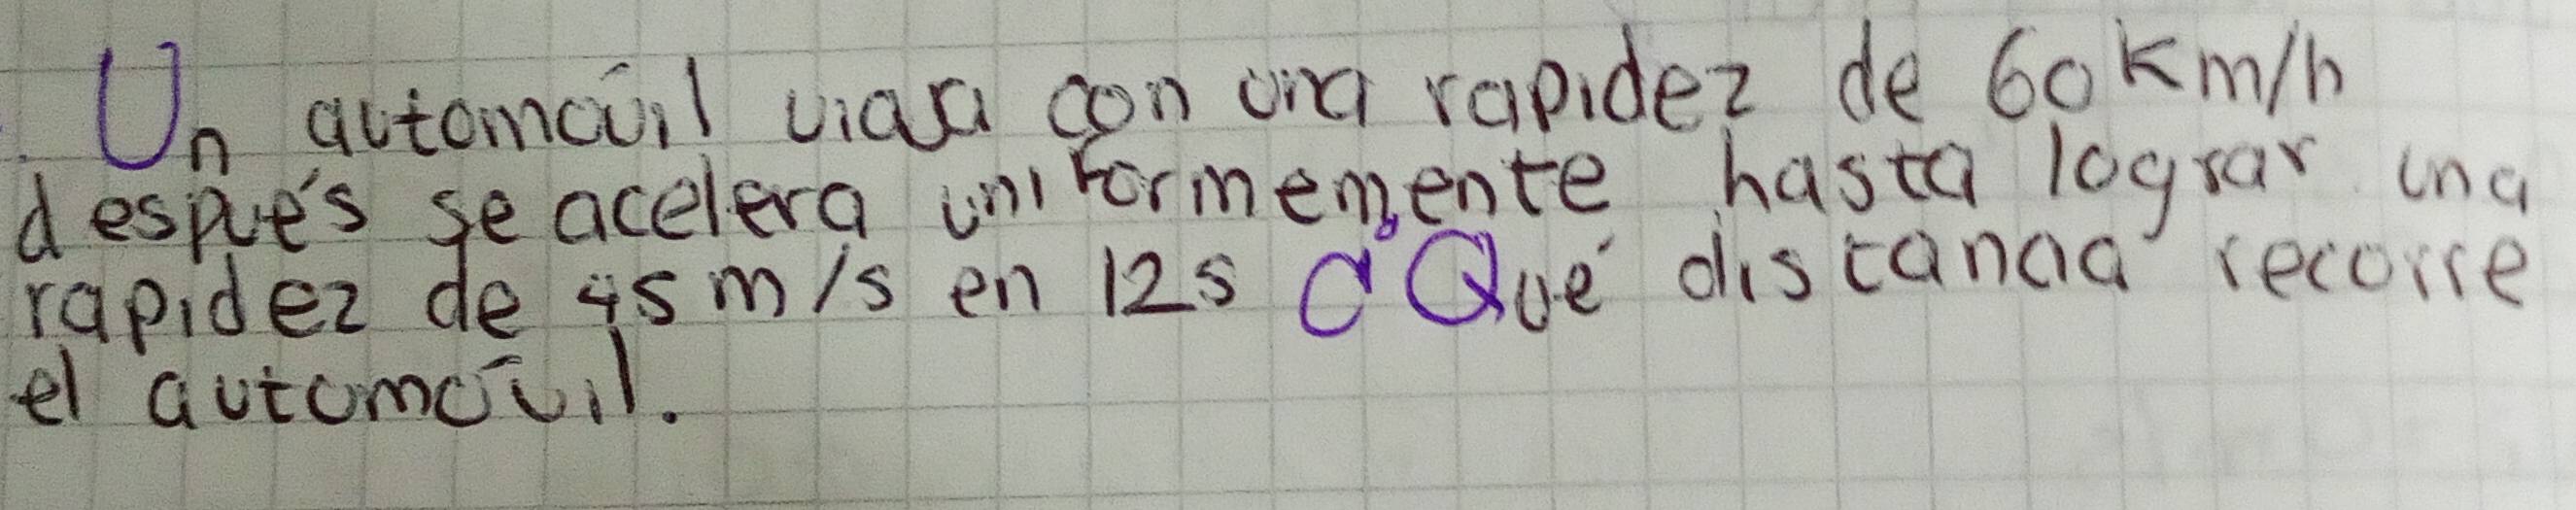 Un automóvil viaja con una rapidez de 60 Km/h
después se acelera uniformemente hasta lograr una
rapidez de 45 m/s en 12 s ¿Qué distancia recorre
el automóvil.